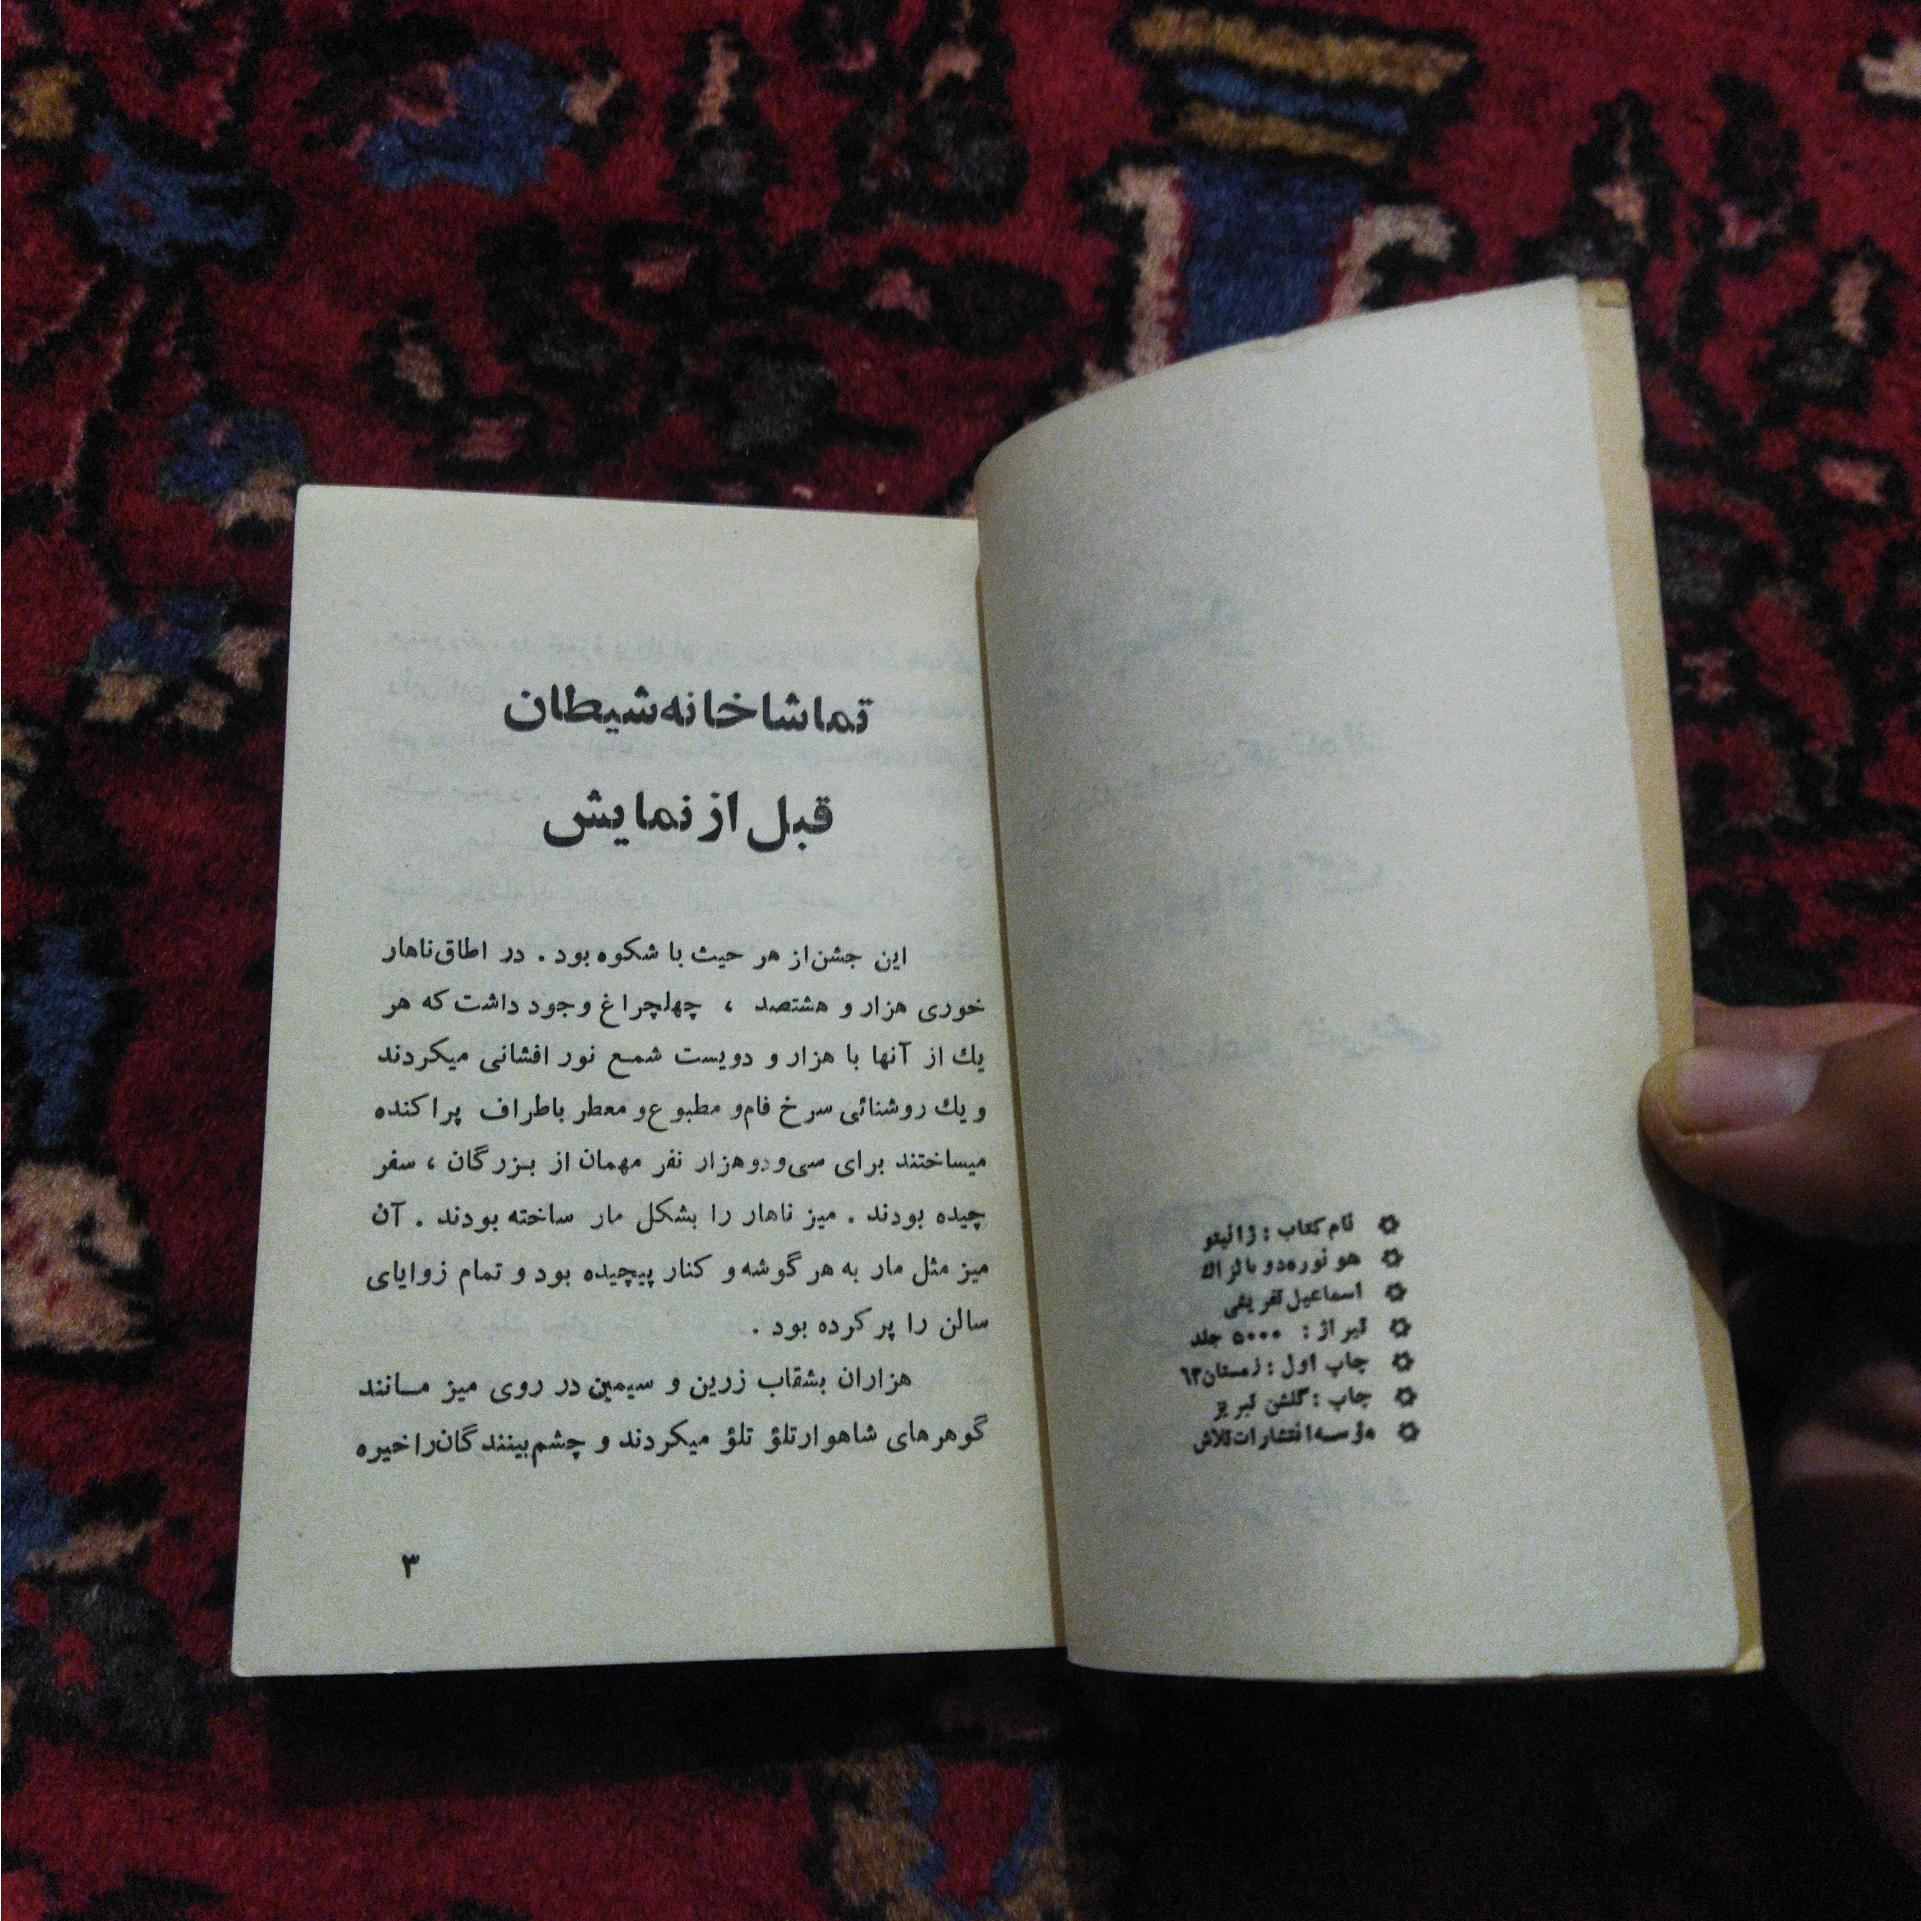 نام کتاب : ژالیتو
هونوره دو بالزاک
اسماعیل تفریشی
تیراژ : ۵۰۰۰ جلد
چاپ اول : زمستان ۶۳
چاپ : گلشن تبریز
مؤسسه انتشارات تلاش
تماشاخانه شیطان
قبل از نمایش
این جشن از هر حیث با شکوه بود . در اطاق ناهار
خوری هزار و هشتصد ، چهلچراغ وجود داشت که هر
یك از آنها با هزار و دویست شمع نور افشانی میکردند
و یك روشنائی سرخ فام و مطبوع و معطر باطراف پراکنده
میساختند برای سی و دو هزار نفر مهمان از بزرگان ، سفر
چیده بودند . میز ناهار را بشکل مار ساخته بودند . آن
میز مثل مار به هر گوشه و کنار پیچیده بود و تمام زوایای
سالن را پر کرده بود .
هزاران بشقاب زرین و سیمین در روی میز مانند
گوهرهای شاهوار تلؤ تلؤ میکردند و چشم بینندگان را خیره
۳